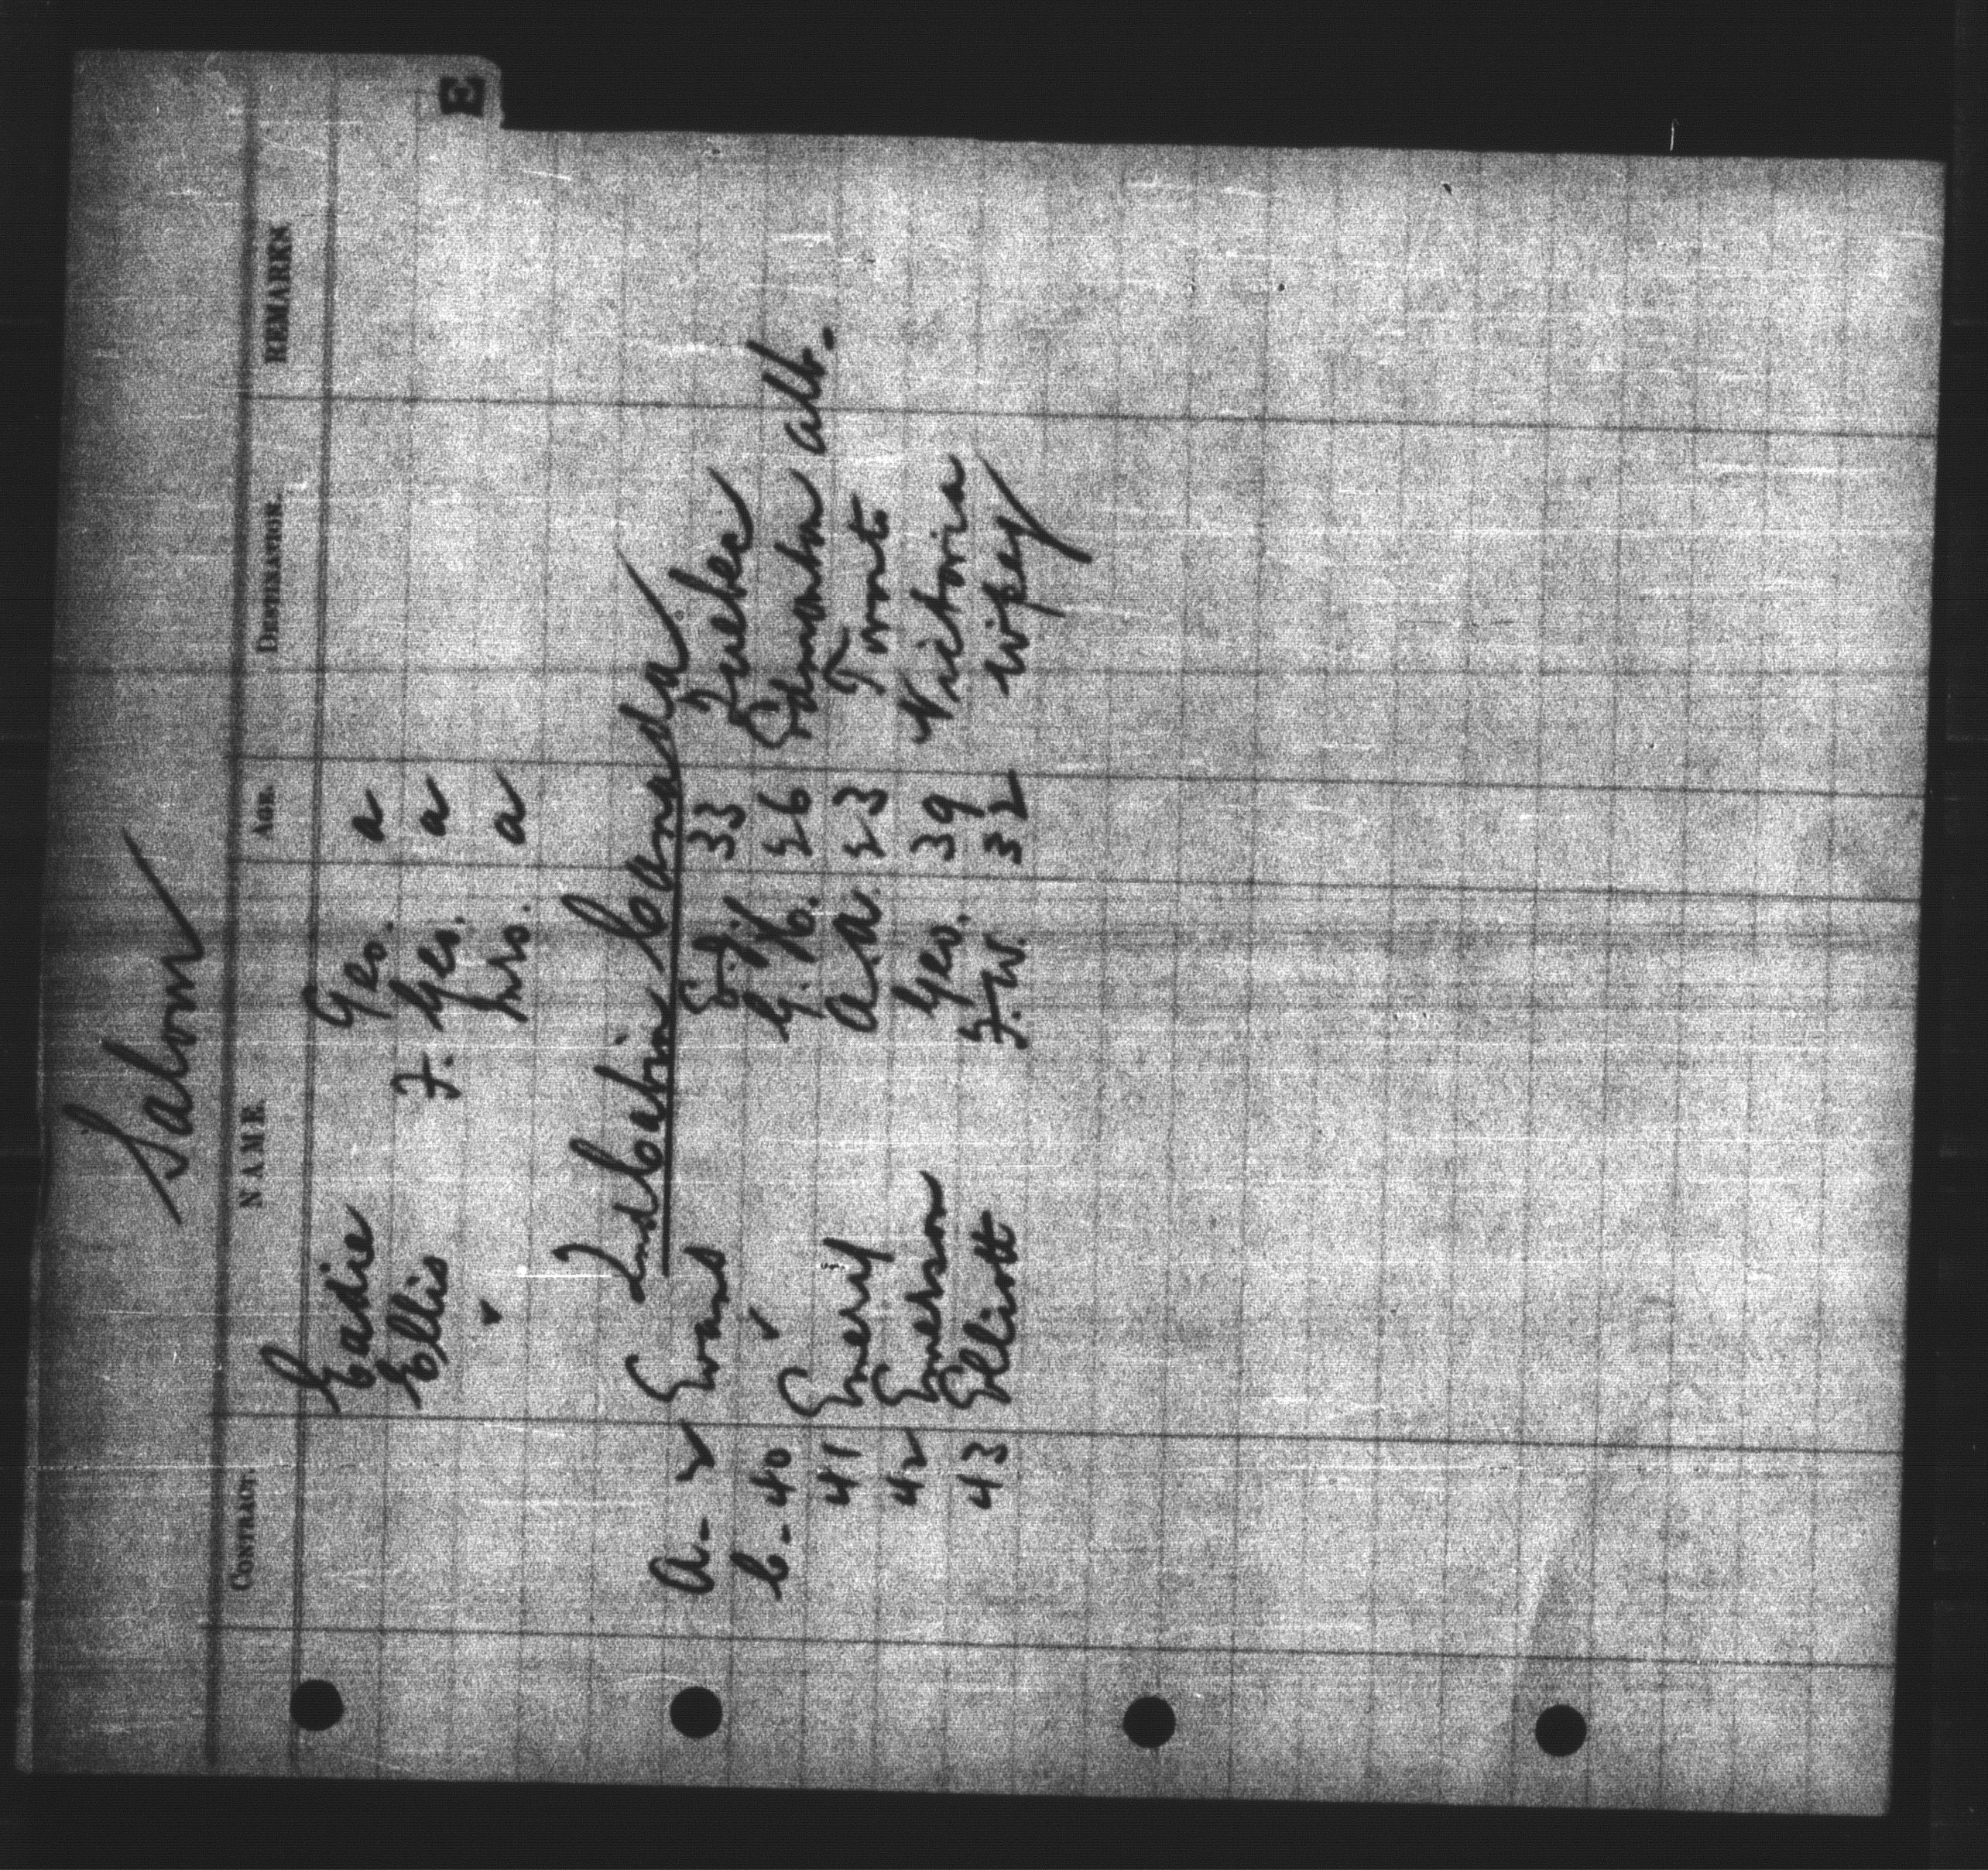 Saloon
CONTRACT. NAME. AGE. DESTINATION. REMARKS
E
Eadie Geo. a
Ellis F. Geo. a
" Mrs. a
2nd Cabin Canada
A - 2 Evans 33 Quebec
C - 40 " G. H. 26 Edmonton Alb.
41 Emery A. A. 23 Toronto
42 Emerson Geo. 39 Victoria
43 Elliott F. W. 32 Wipeg